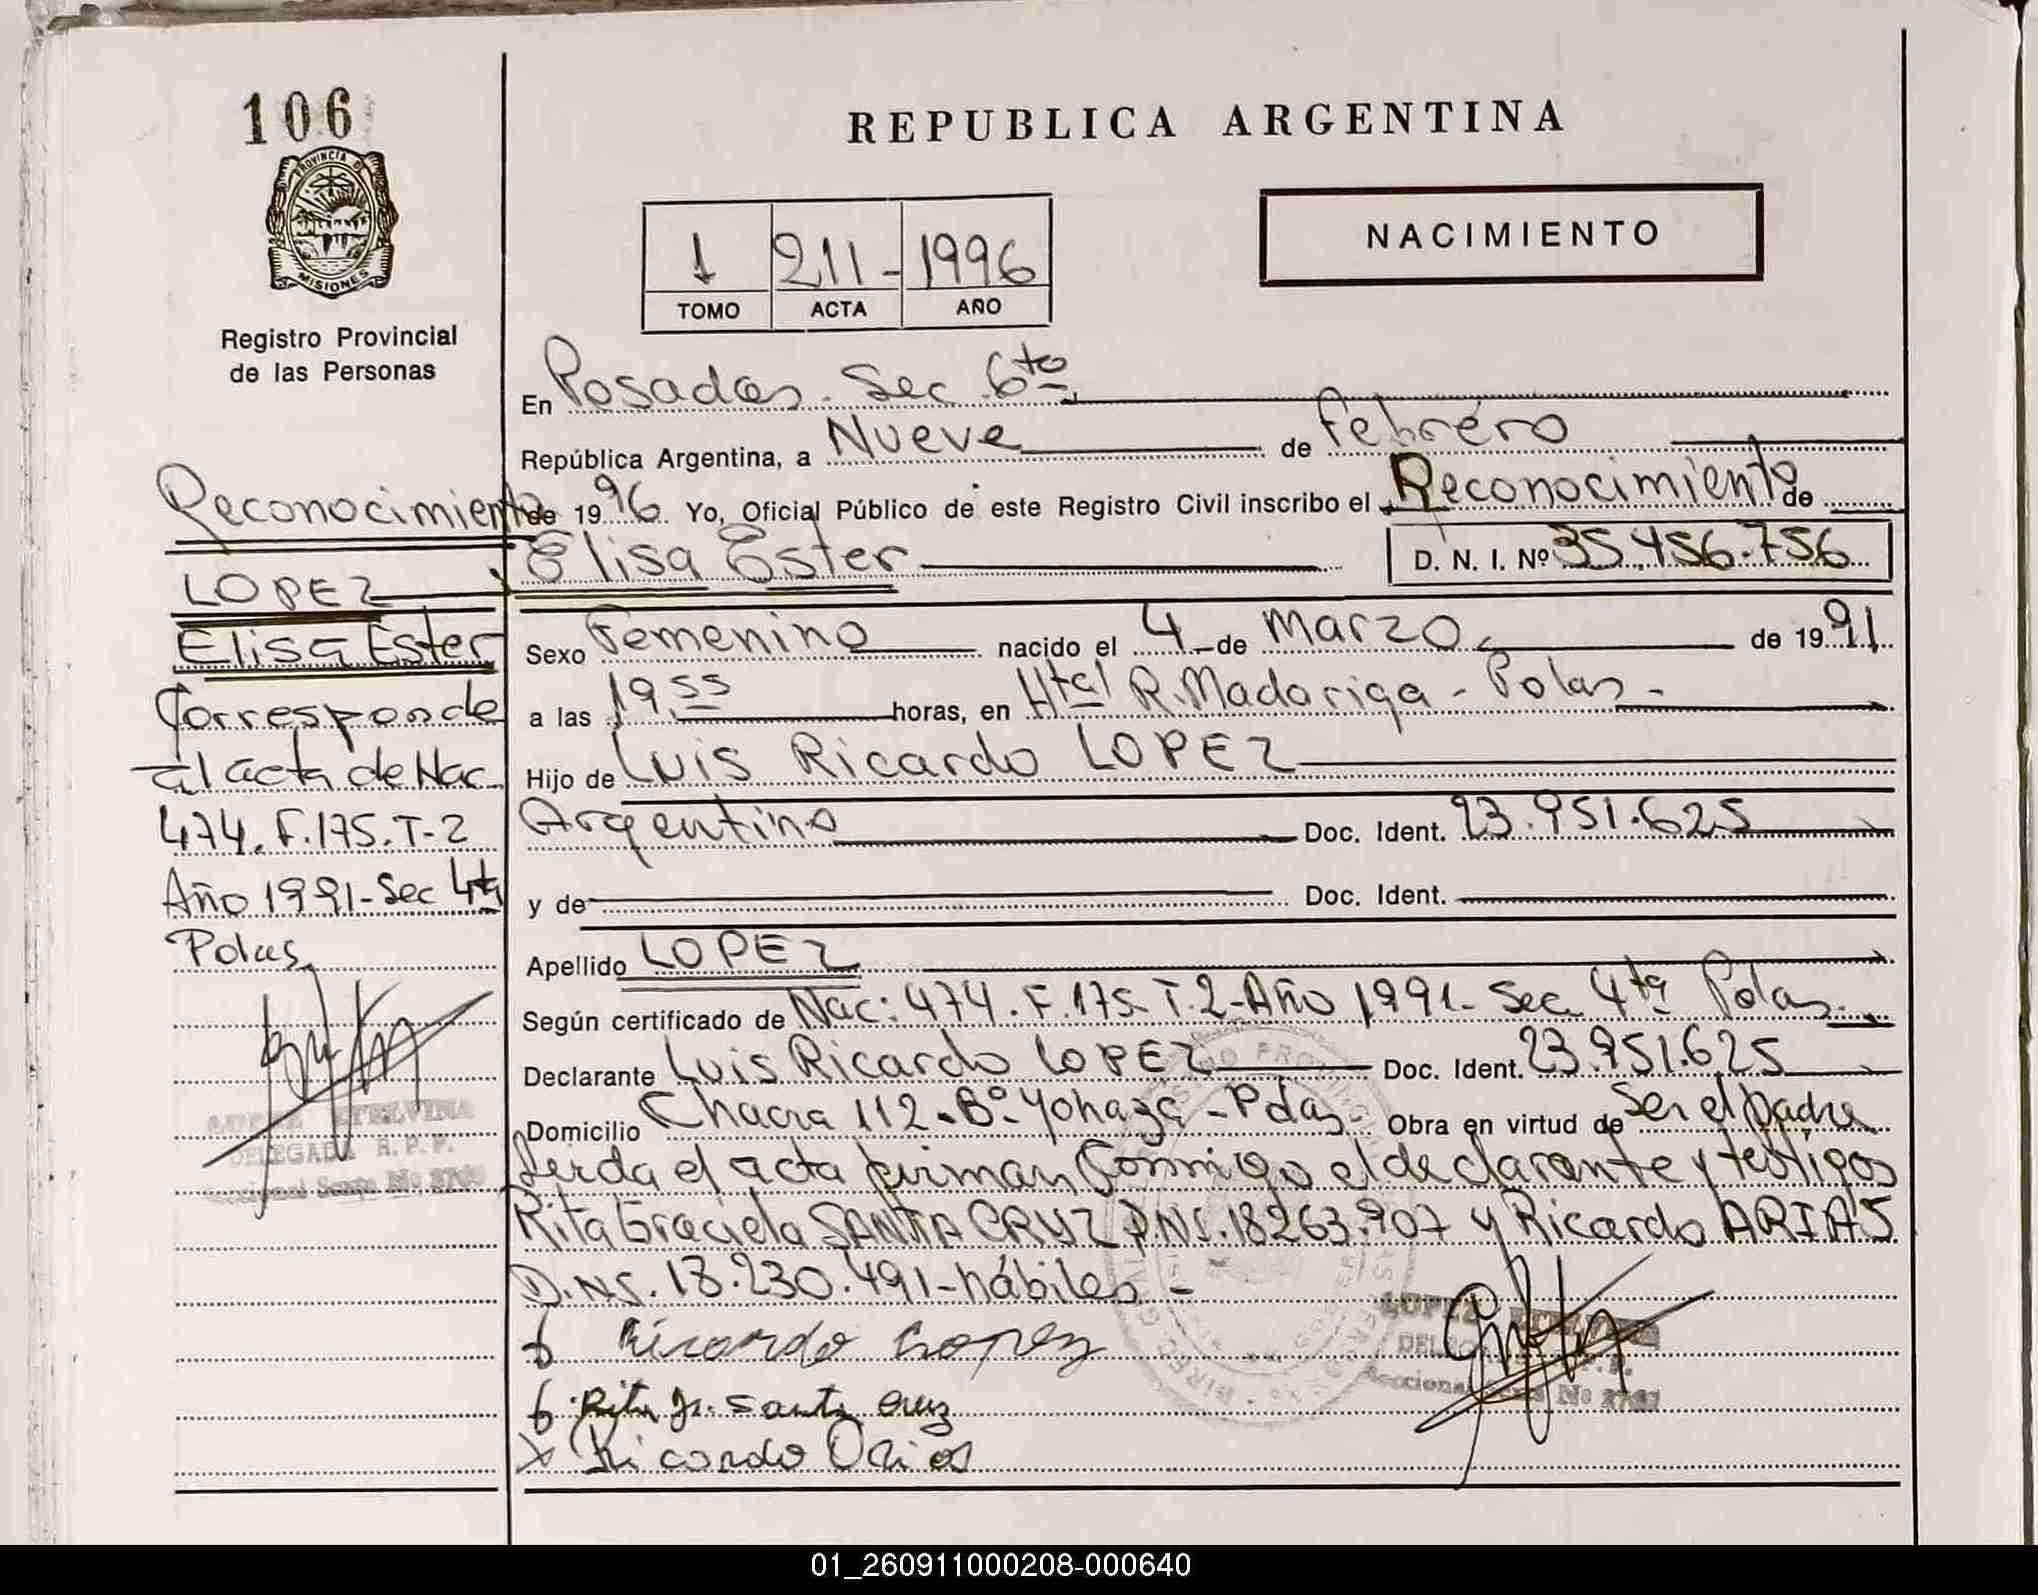 106
PROVINCIA DE
MISIONES
Registro Provincial
de las Personas
REPUBLICA ARGENTINA
1 211- 1996
TOMO ACTA AÑO
NACIMIENTO
En Posadas. Sec. 6ta
República Argentina, a Nueve de Febrero
de 1996 Yo, Oficial Público de este Registro Civil inscribo el Reconocimiento de
Elisa Ester D. N. I. Nº 35.456.756
Sexo Femenino nacido el 4 de Marzo de 1991
a las 19,55 horas, en Htal R. Madariga - Polas -
Hijo de Luis Ricardo LOPEZ
Argentino Doc. Ident. 23.951.625
y de Doc. Ident.
Apellido LOPEZ
Según certificado de Nac: 474. F. 175. T. 2 - Año 1991 - Sec 4ta Polas
Declarante Luis Ricardo LOPEZ Doc. Ident. 23.951.625
Domicilio Chacra 112 - Bº Yohasa - Pdas Obra en virtud de Ser el padre
Leida el acta firman Conmigo el declarante y testigos
Rita Graciela SANTA CRUZ D.N.I. 18263.907 y Ricardo ARIAS
D.N.I. 18.230.491 - hábiles -
Ricardo Lopez
Rita G. Santa Cruz
Ricardo Arias
LOPEZ ETELVINA
Seccional Sexta No 2767
Reconocimiento
LOPEZ
Elisa Ester
Corresponde
al acta de Nac
474. F. 175. T-2
Año 1991 - Sec 4ta
Polas
LOPEZ ETELVINA
DELEGADA R. P. P.
Seccional Sexta No
01_260911000208-000640